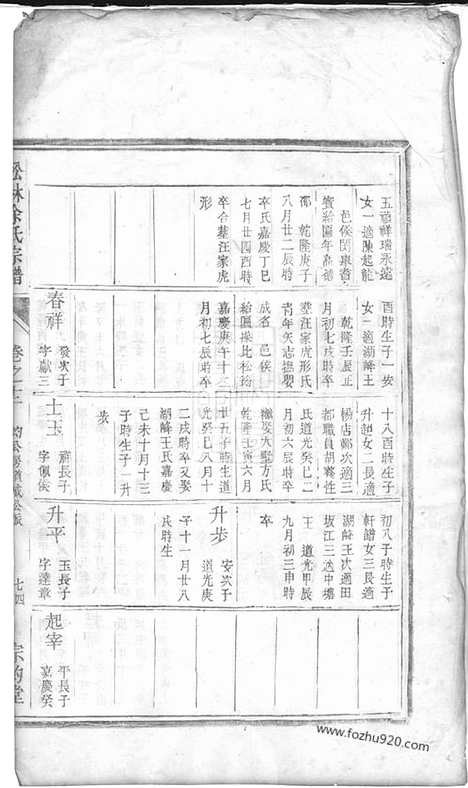 五福祥瑞永遠
女一適陳起龍
邑侯閔棠耆
賓給匾年高德
邵 乾隆庚子
八月廿二辰時
卒氏嘉慶丁巳
七月廿四酉時
卒合墓汪家虎
形
酉時生子一安
女二適湖㟁王
乾隆壬辰正
月初七戌時卒
塟汪家虎形氏
青年矢志撫嬰
成名 邑侯
給匾操比松筠
嘉慶庚午十二
月初七辰時卒
春祥 發次子
字獻三
十八酉時生子
升起女二長適
楊店鄭次適三
都職員胡養性
氏道光癸巳二
月初六辰時卒
繼娶大墅方氏
嘉慶壬寅六月
廿五子時生道
光癸巳八月十
二戌時卒又娶
湖㟁王氏嘉慶
己未十月十三
子時生子一升
步
士玉 祥長子
字佩侯
初八子時生子
軒諎女三長適
湖㟁王次適田
坂江三适中塘
王 道光甲辰
九月初三申時
卒
升步 安次子
道光庚
午十一月廿八
氏時生
升平 玉長子
字達章
起宰 平長子
嘉慶癸
松林余氏宗譜
卷之三
七四
宗昀堂
www.fozhu920.com